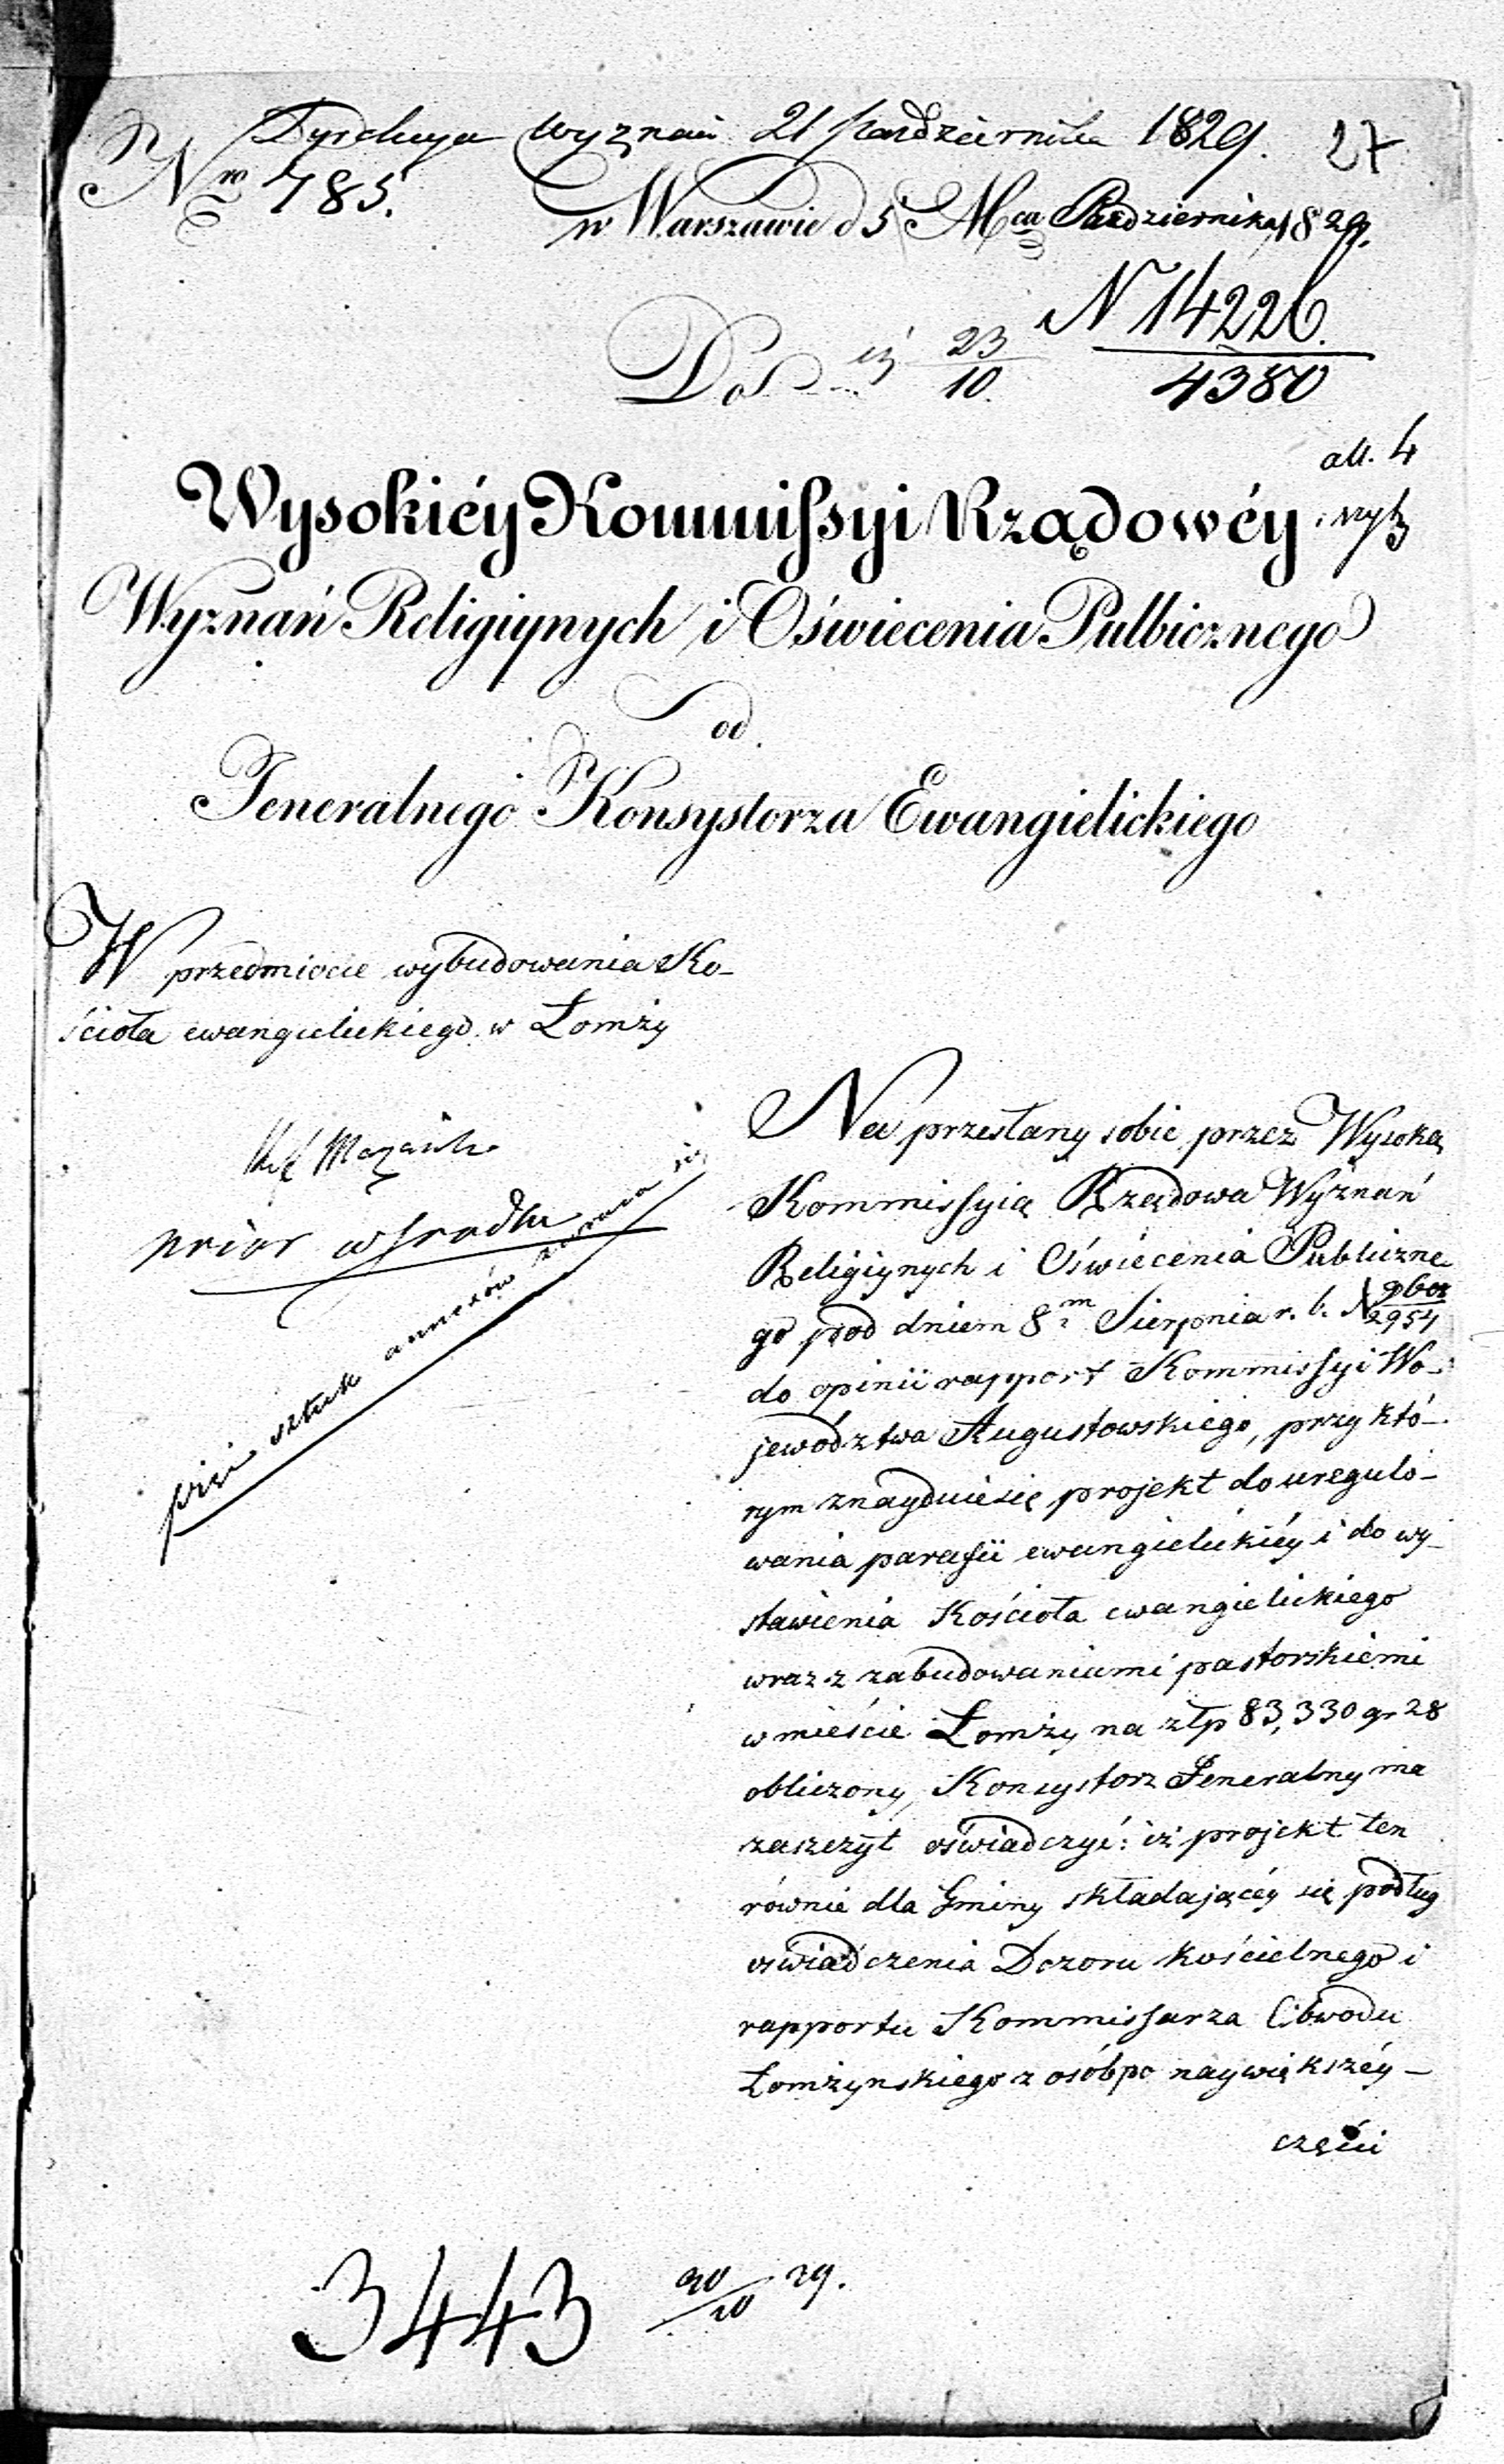 Dyrekcya Wyznań 21 Października 1829. 27
Nro 785.
w Warszawie d 5 Mca Października 1829.
N 14226.
4380
Do 23
10.
all. 4
Wysokiéy Kommissyi Rządowéy
Wyznań Religiynych i Oświecenia Pulbicznego
od
Jeneralnego Konsystorza Ewangielickiego
W przedmiocie wybudowania Ko-
ścioła ewangielickiego w Łomży
pięć sztuk annexów zwraca się
Na przesłany sobie przez Wysoką
Kommissyią Rządowa Wyznań
Religiynych i Oświecenia Publiczne
go pod dniem 8m Sierpnia r. b. N
2954
do opinii rapport Kommissyi Wo-
jewództwa Augustowskiego, przy któ-
rym znayduie się projekt do uregulo-
wania parafii ewangielickiéy i do wy-
stawienia Kościoła ewangielickiego
wraz z zabudowaniami pastorskiemi
w mieście Łomży na złp 83,330 gr 28
obliczony, Konsystorz Jeneralny ma
zaszczyt oświadczyć: iż projekt ten
równie dla Gminy składaiącéy się podług
oświadczenia Dozoru kościelnego i
rapportu Kommissarza Obwodu
Łomżynskiego z osób po naywiększéy -
części
3443 20/10 29.